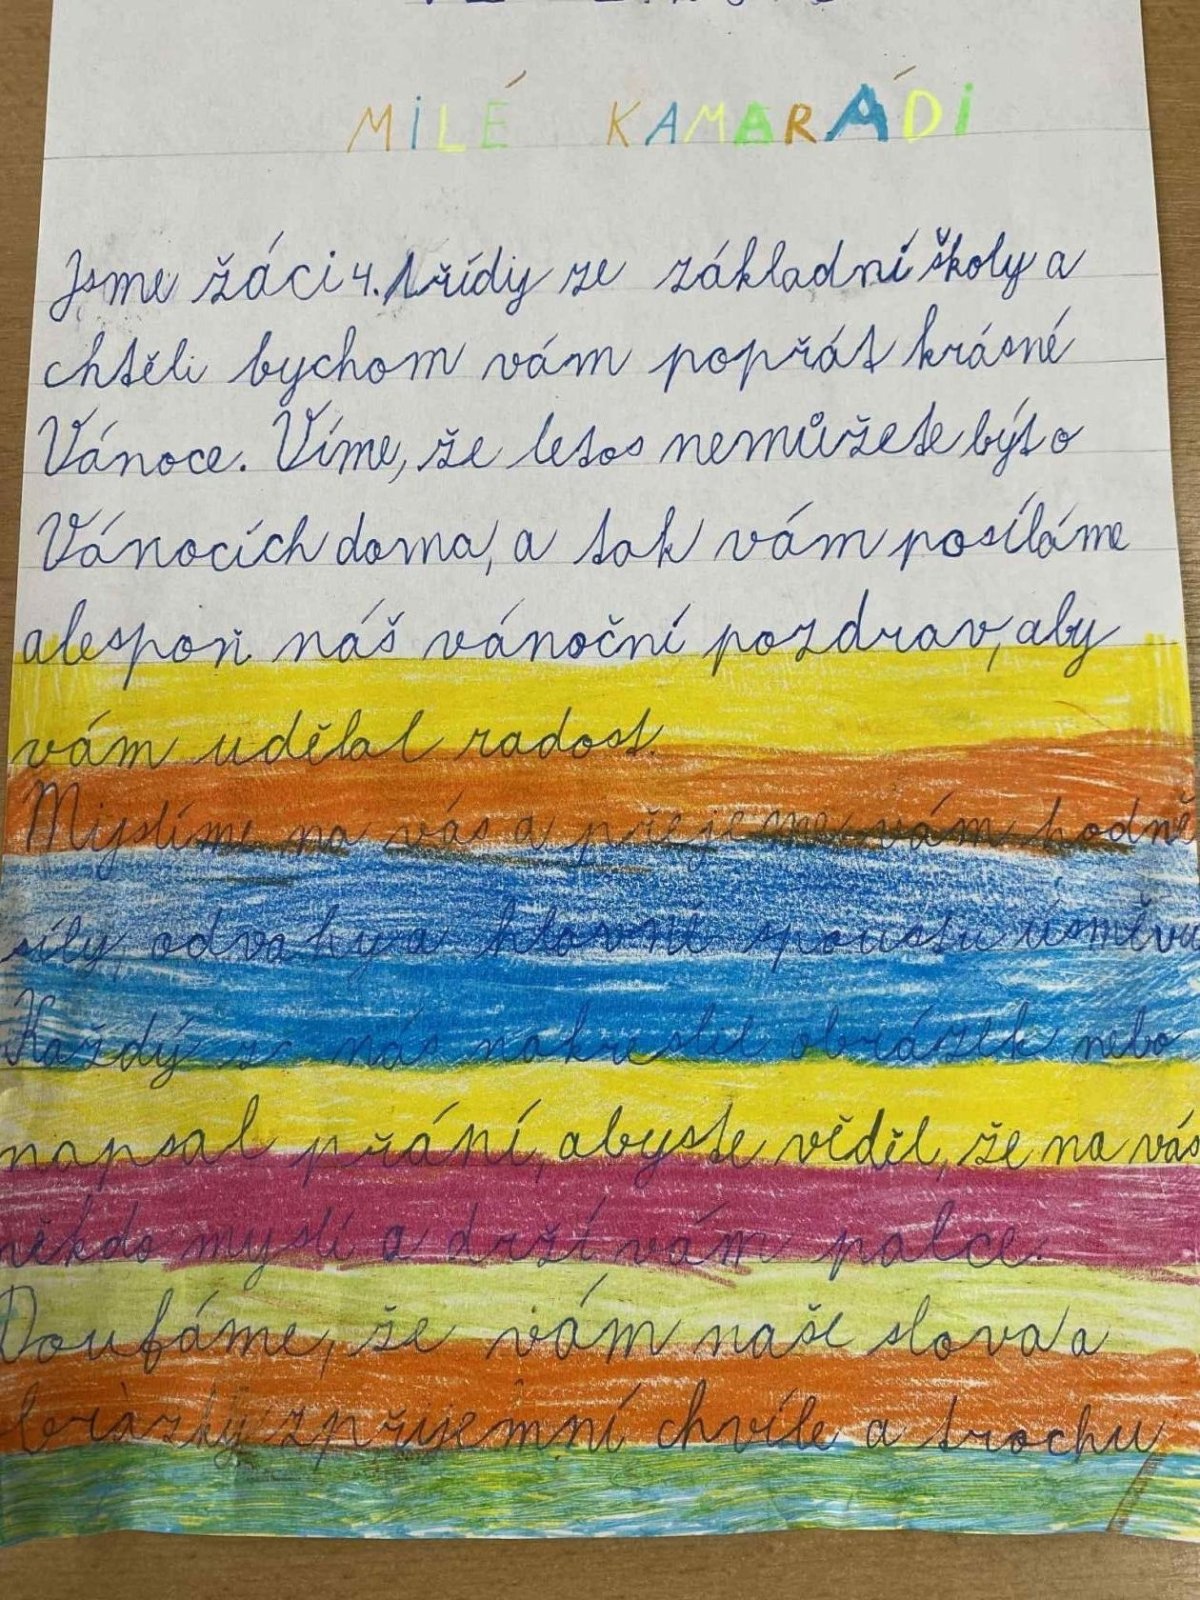 MILÉ KAMARÁDI
Jsme žáci 4. třídy ze základní školy a
chtěli bychom vám popřát krásné
Vánoce. Víme, že letos nemůžete být o
Vánocích doma, a tak vám posíláme
alespoň náš vánoční pozdrav, aby
vám udělal radost.
Myslíme na vás a přejeme vám hodně
síly, odvahy a hlavně spoustu úsměvů
Každý z nás nakreslil obrázek nebo
napsal přání, abyste věděl, že na vás
někdo myslí a drží vám palce.
Doufáme, že vám naše slova a
brázky zpříjemní chvíle a trochu